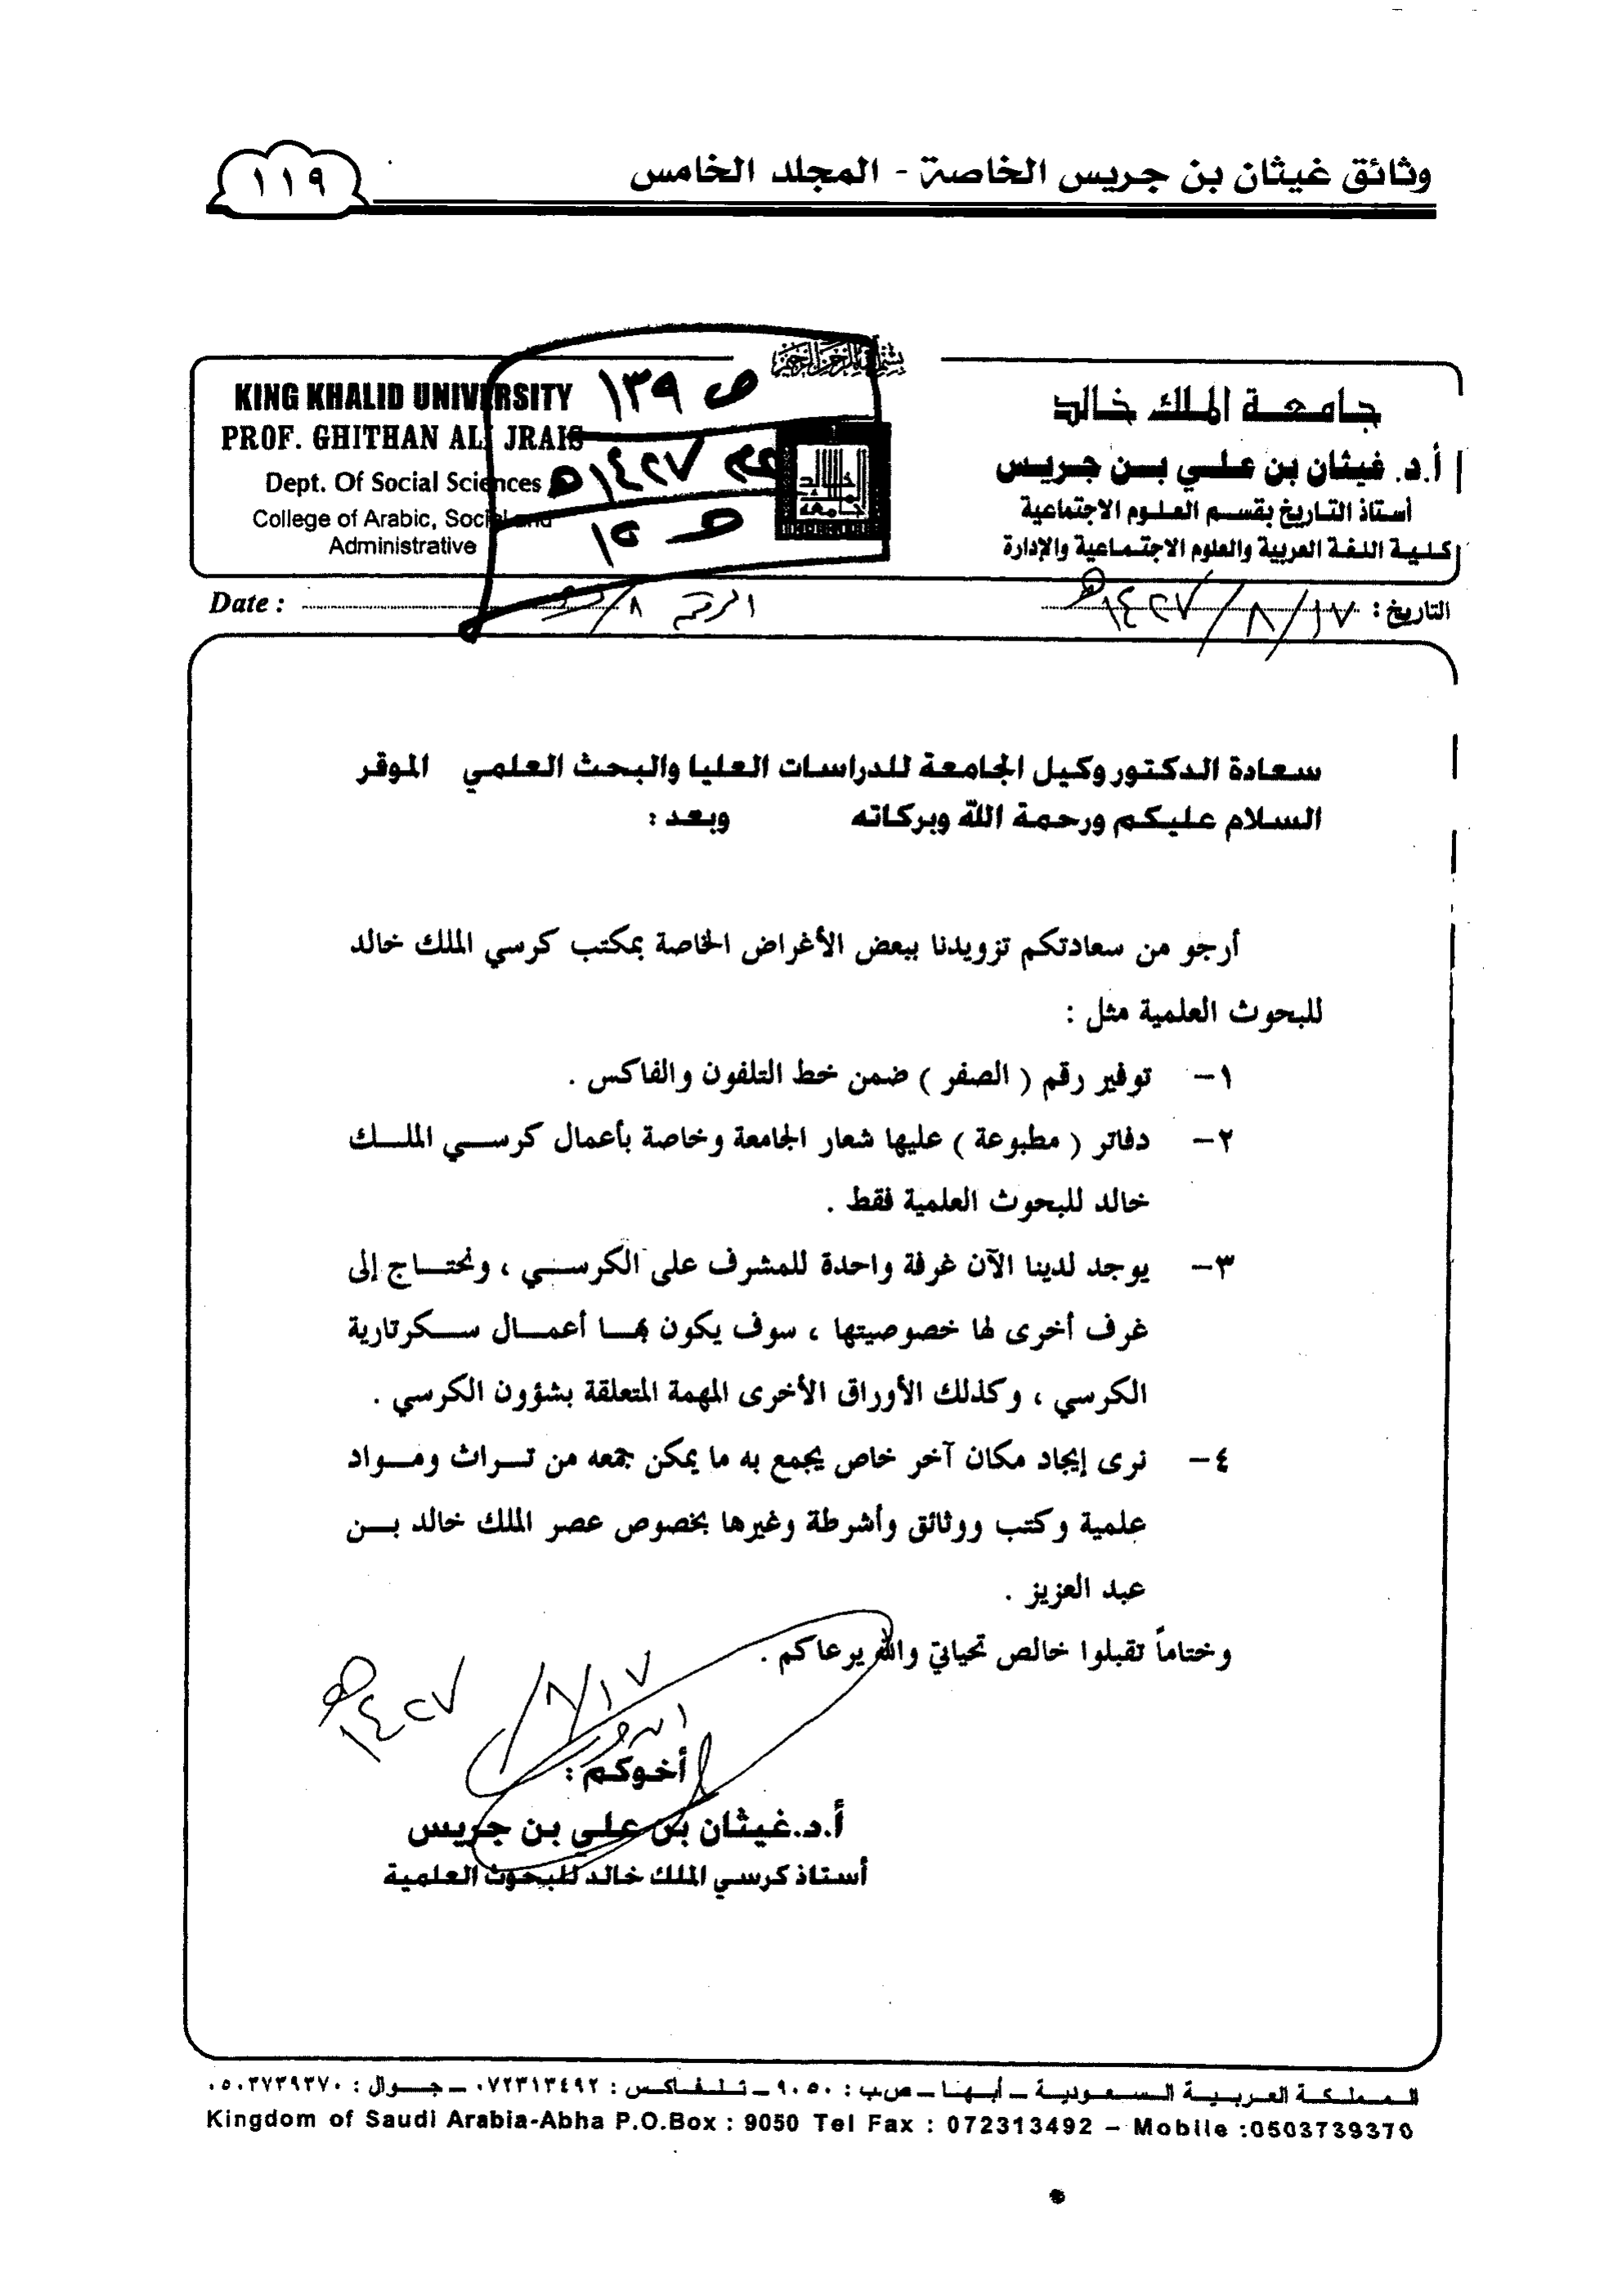 وثائق غيثان بن جريس الخاصة - المجلد الخامس
١١٩
بسم الله الرحمن الرحيم
جامعة الملك خالد
أ.د. غيثان بن علي بن جريس
أستاذ التاريخ بقسم العلوم الاجتماعية
كلية اللغة العربية والعلوم الاجتماعية والإدارة
KING KHALID UNIVERSITY
PROF. GHITHAN ALI JRAIS
Dept. Of Social Sciences
College of Arabic, Social and
Administrative
ص ١٣٩
١٤٢٧هـ
ص ١٥
التاريخ : ١٤٢٧/٨/١٧هـ
الرقم ٨/
Date :
سعادة الدكتور وكيل الجامعة للدراسات العليا والبحث العلمي الموقر
السلام عليكم ورحمة الله وبركاته وبعد :
أرجو من سعادتكم تزويدنا ببعض الأغراض الخاصة بمكتب كرسي الملك خالد
للبحوث العلمية مثل :
١- توفير رقم ( الصفر ) ضمن خط التلفون والفاكس .
٢- دفاتر ( مطبوعة ) عليها شعار الجامعة وخاصة بأعمال كرسي الملك
خالد للبحوث العلمية فقط .
٣- يوجد لدينا الآن غرفة واحدة للمشرف على الكرسي ، ونحتاج إلى
غرف أخرى لها خصوصيتها ، سوف يكون بها أعمال سكرتارية
الكرسي ، وكذلك الأوراق الأخرى المهمة المتعلقة بشؤون الكرسي .
٤- نرى إيجاد مكان آخر خاص يجمع به ما يمكن جمعه من تراث ومواد
علمية وكتب ووثائق وأشرطة وغيرها بخصوص عصر الملك خالد بن
عبد العزيز .
وختاماً تقبلوا خالص تحياتي والله يرعاكم .
١٤٢٧/٨/١٧هـ
أخوكم :
أ.د.غيثان بن علي بن جريس
أستاذ كرسي الملك خالد للبحوث العلمية
المملكة العربية السعودية - أبها - ص.ب : ٩٠٥٠ - تلفاكس : ٠٧٢٣١٣٤٩٢ - جوال : ٠٥٠٣٧٣٩٣٧٠
Kingdom of Saudi Arabia-Abha P.O.Box : 9050 Tel Fax : 072313492 – Mobile :0503739370